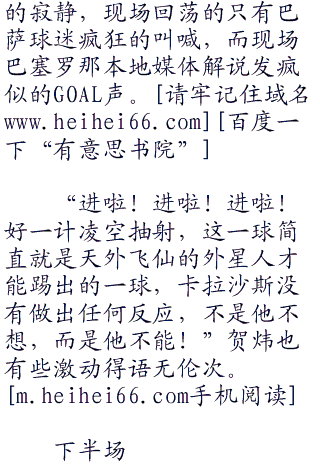 的寂静，现场回荡的只有巴
萨球迷疯狂的叫喊，而现场
巴塞罗那本地媒体解说发疯
似的GOAL声。[请牢记住域名
www.heihei66.com][百度一
下“有意思书院”]
“进啦！进啦！进啦！
好一计凌空抽射，这一球简
直就是天外飞仙的外星人才
能踢出的一球，卡拉沙斯没
有做出任何反应，不是他不
想，而是他不能！”贺炜也
有些激动得语无伦次。
[m.heihei66.com手机阅读]
下半场